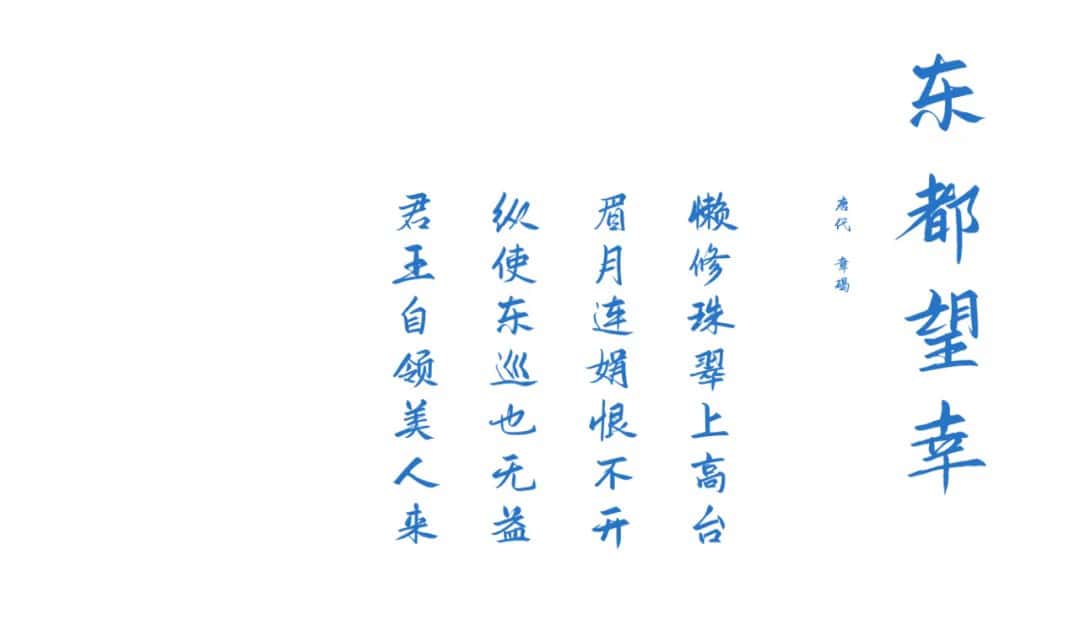 东都望幸
唐代 章碣
懒修珠翠上高台
眉月连娟恨不开
纵使东巡也无益
君王自领美人来